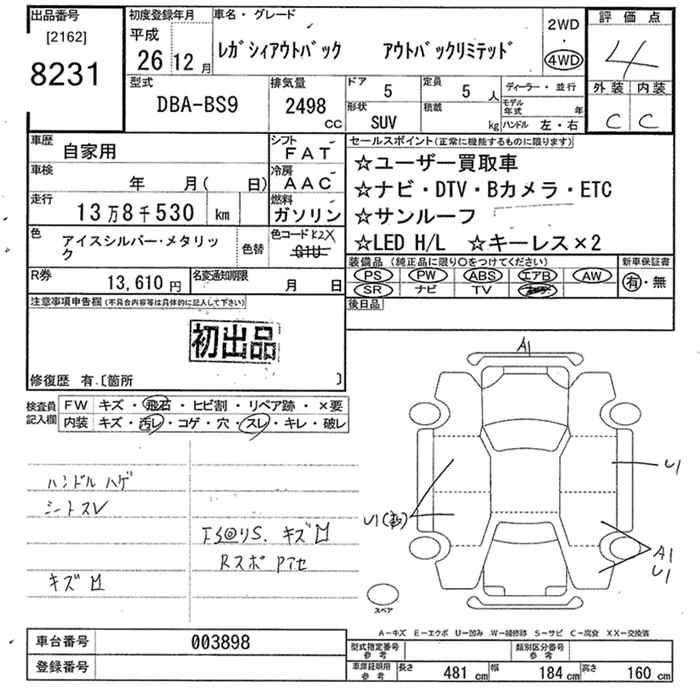 出品番号
[2162]
8231
初度登録年月
平成
26年12月
車名・グレード
レガシィアウトバック アウトバックリミテッド
2WD
・
4WD
評価点
4
外装 内装
C C
型式
DBA-BS9
排気量
2498
CC
ドア
5
定員
5人
形状
SUV
積載
kg
ディーラー・並行
モデル年式 年
ハンドル 左・右
車歴
自家用
シフト
FAT
車検
年 月( 日)
冷房
AAC
走行
13万8千530 km
燃料
ガソリン
色
アイスシルバー・メタリック
色替
色コード K2X
G1U
R券
13,610円
名変通知期限
月 日
セールスポイント(正常に機能するものに限ります)
☆ユーザー買取車
☆ナビ・DTV・Bカメラ・ETC
☆サンルーフ
☆LED H/L ☆キーレス×2
装備品(純正品に限り○をつけてください)
PS PW ABS エアB AW
SR ナビ TV
新車保証書
有・無
後日品
注意事項申告欄(不具合内容等は具体的に記入して下さい)
初出品
修復歴 有〔箇所 〕
検査員
記入欄
FW キズ・飛石・ヒビ割・リペア跡・×要
内装 キズ・汚レ・コゲ・穴・スレ・キレ・破レ
ハンドルハゲ
シートスレ
キズ凹
下S@リS、キズ凹
RスポPアセ
A1
U1
A1
U1
スペア
A-キズ E-エクボ U-凹み W-補修跡 S-サビ C-腐食 XX-交換済
車台番号
003898
登録番号
型式指定番号
参考
類別区分番号
参考
車庫証明用
参考
長さ 481 cm 幅 184 cm 高さ 160 cm